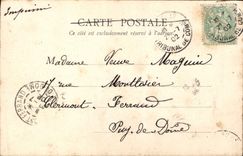 Imprimé
CARTE POSTALE
Ce côté est exclusivement réservé à l'adresse
Madame Veuve Maguin
17 rue Montlosier
Clermont-Ferrand
Puy de Dôme